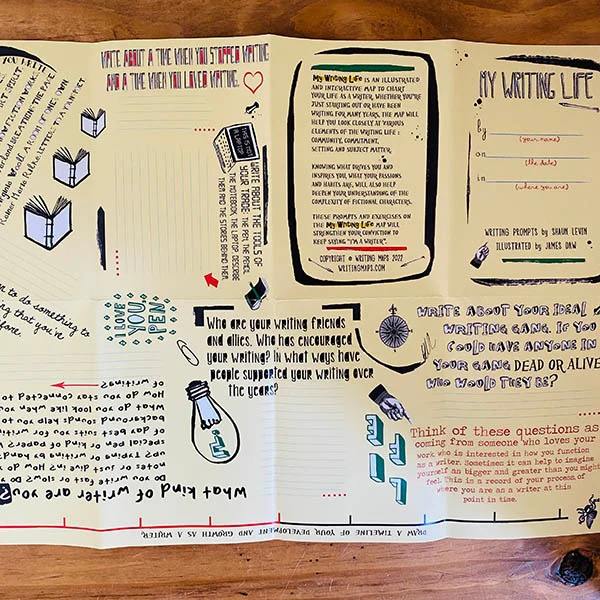 WRITE ABOUT A TIME WHEN YOU STOPPED WRITING
AND A TIME WHEN YOU LOVED WRITING.
MY WRITING LIFE IS AN ILLUSTRATED
AND INTERACTIVE MAP TO CHART
YOUR LIFE AS A WRITER. WHETHER YOU'RE
JUST STARTING OUT OR HAVE BEEN
WRITING FOR MANY YEARS, THE MAP WILL
HELP YOU LOOK CLOSELY AT VARIOUS
ELEMENTS OF THE WRITING LIFE:
COMMUNITY, COMMITMENT,
SETTING AND SUBJECT MATTER.
KNOWING WHAT DRIVES YOU AND
INSPIRES YOU, WHAT YOUR PASSIONS
AND HABITS ARE, WILL ALSO HELP
DEEPEN YOUR UNDERSTANDING OF THE
COMPLEXITY OF FICTIONAL CHARACTERS.
THESE PROMPTS AND EXERCISES ON
THE MY WRITING LIFE MAP WILL
STRENGTHEN YOUR CONVICTION TO
KEEP SAYING "I'M A WRITER".
COPYRIGHT © WRITING MAPS 2022
WRITINGMAPS.COM
MY WRITING LIFE
by
(your name)
on
(the date)
in
(where you are)
WRITING PROMPTS BY SHAUN LEVIN
ILLUSTRATED BY JAMES DAW
WRITE ABOUT THE TOOLS OF
YOUR TRADE: THE PEN, THE PENCIL
THE NOTEBOOK, THE LAPTOP. DESCRIBE
THEM AND THE STORIES BEHIND THEM.
to do something to
that you're
I LOVE
YOU,
PEN
Who are your writing friends
and allies. Who has encouraged
your writing? In what ways have
people supported your writing over
the years?
WRITE ABOUT YOUR IDEAL
WRITING GANG. IF YOU
COULD HAVE ANYONE IN
YOUR GANG DEAD OR ALIVE
WHO WOULD THEY BE?
Think of these questions as
coming from someone who loves your
work who is interested in how you function
as a writer. Sometimes it can help to imagine
yourself as bigger and greater than you might
feel. This is a record of your process of
where you are as a writer at this
point in time.
What kind of writer are you?
write fast or slow? Do
notes or just dive in? How do you
up? Typing? Writing by hand?
special pen or kind of paper?
of day set aside for writing?
background sounds help you
what do you look like when you
How do you stay connected to
of writing?
DRAW A TIMELINE OF YOUR DEVELOPMENT AND GROWTH AS A WRITER.